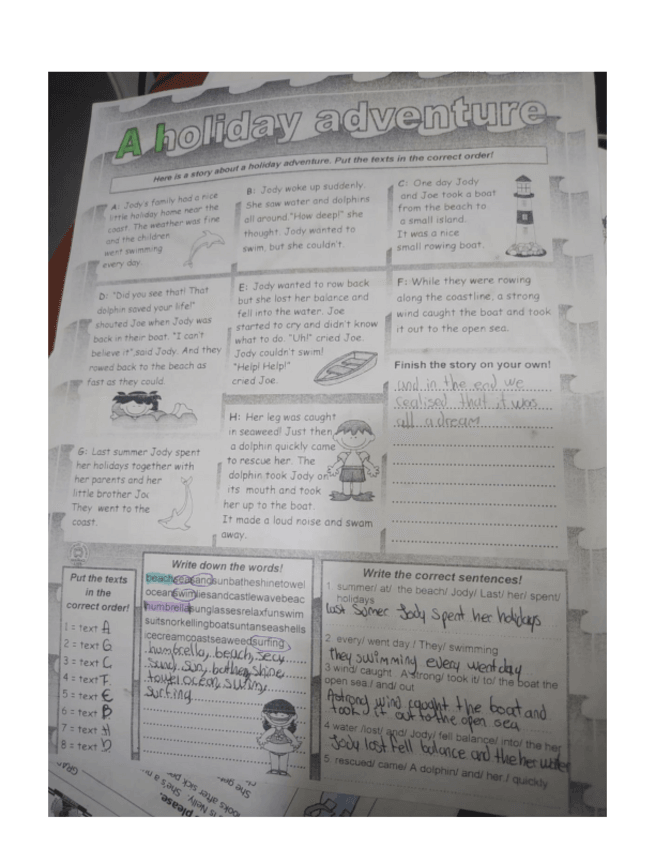 A holiday adventure
Here is a story about a holiday adventure. Put the texts in the correct order!
A: Jody's family had a nice
little holiday home near the
coast. The weather was fine
and the children
went swimming
every day.
B: Jody woke up suddenly.
She saw water and dolphins
all around. "How deep!" she
thought. Jody wanted to
swim, but she couldn't.
C: One day Jody
and Joe took a boat
from the beach to
a small island.
It was a nice
small rowing boat.
D: "Did you see that! That
dolphin saved your life!"
shouted Joe when Jody was
back in their boat. "I can't
believe it", said Jody. And they
rowed back to the beach as
fast as they could.
E: Jody wanted to row back
but she lost her balance and
fell into the water. Joe
started to cry and didn't know
what to do. "Uh!" cried Joe.
Jody couldn't swim!
"Help! Help!"
cried Joe.
F: While they were rowing
along the coastline, a strong
wind caught the boat and took
it out to the open sea.
G: Last summer Jody spent
her holidays together with
her parents and her
little brother Joe
They went to the
coast.
H: Her leg was caught
in seaweed! Just then
a dolphin quickly came
to rescue her. The
dolphin took Jody on
its mouth and took
her up to the boat.
It made a loud noise and swam
away.
Finish the story on your own!
and in the end we
realised that it was
all a dream
Put the texts
in the
correct order!
1 = text A
2 = text G
3 = text C
4 = text F
5 = text E
6 = text B
7 = text H
8 = text D
Write down the words!
beachseasandsunbatheshinetowel
oceanswimliesandcastlewavebeac
humbrellasunglassesrelaxfunswim
suitsnorkellingboatsuntanseashells
icecreamcoastseaweedsurfing
humbrella, beach, sea
sand, sun, bathe, shine
towel ocean, swim,
surfing
Write the correct sentences!
1 summer/ at/ the beach/ Jody/ Last/ her/ spent/
holidays
last somer Jody spent her holidays
2. every/ went day / They/ swimming
they swimming every went day
3 wind/ caught A strong/ took it/ to/ the boat the
open sea./ and/ out
A strong wind caught the boat and
took it out to the open sea
4 water /lost/ and/ Jody/ fell balance/ into/ the her
Jody lost fell balance and the her water
5. rescued/ came/ A dolphin/ and/ her./ quickly